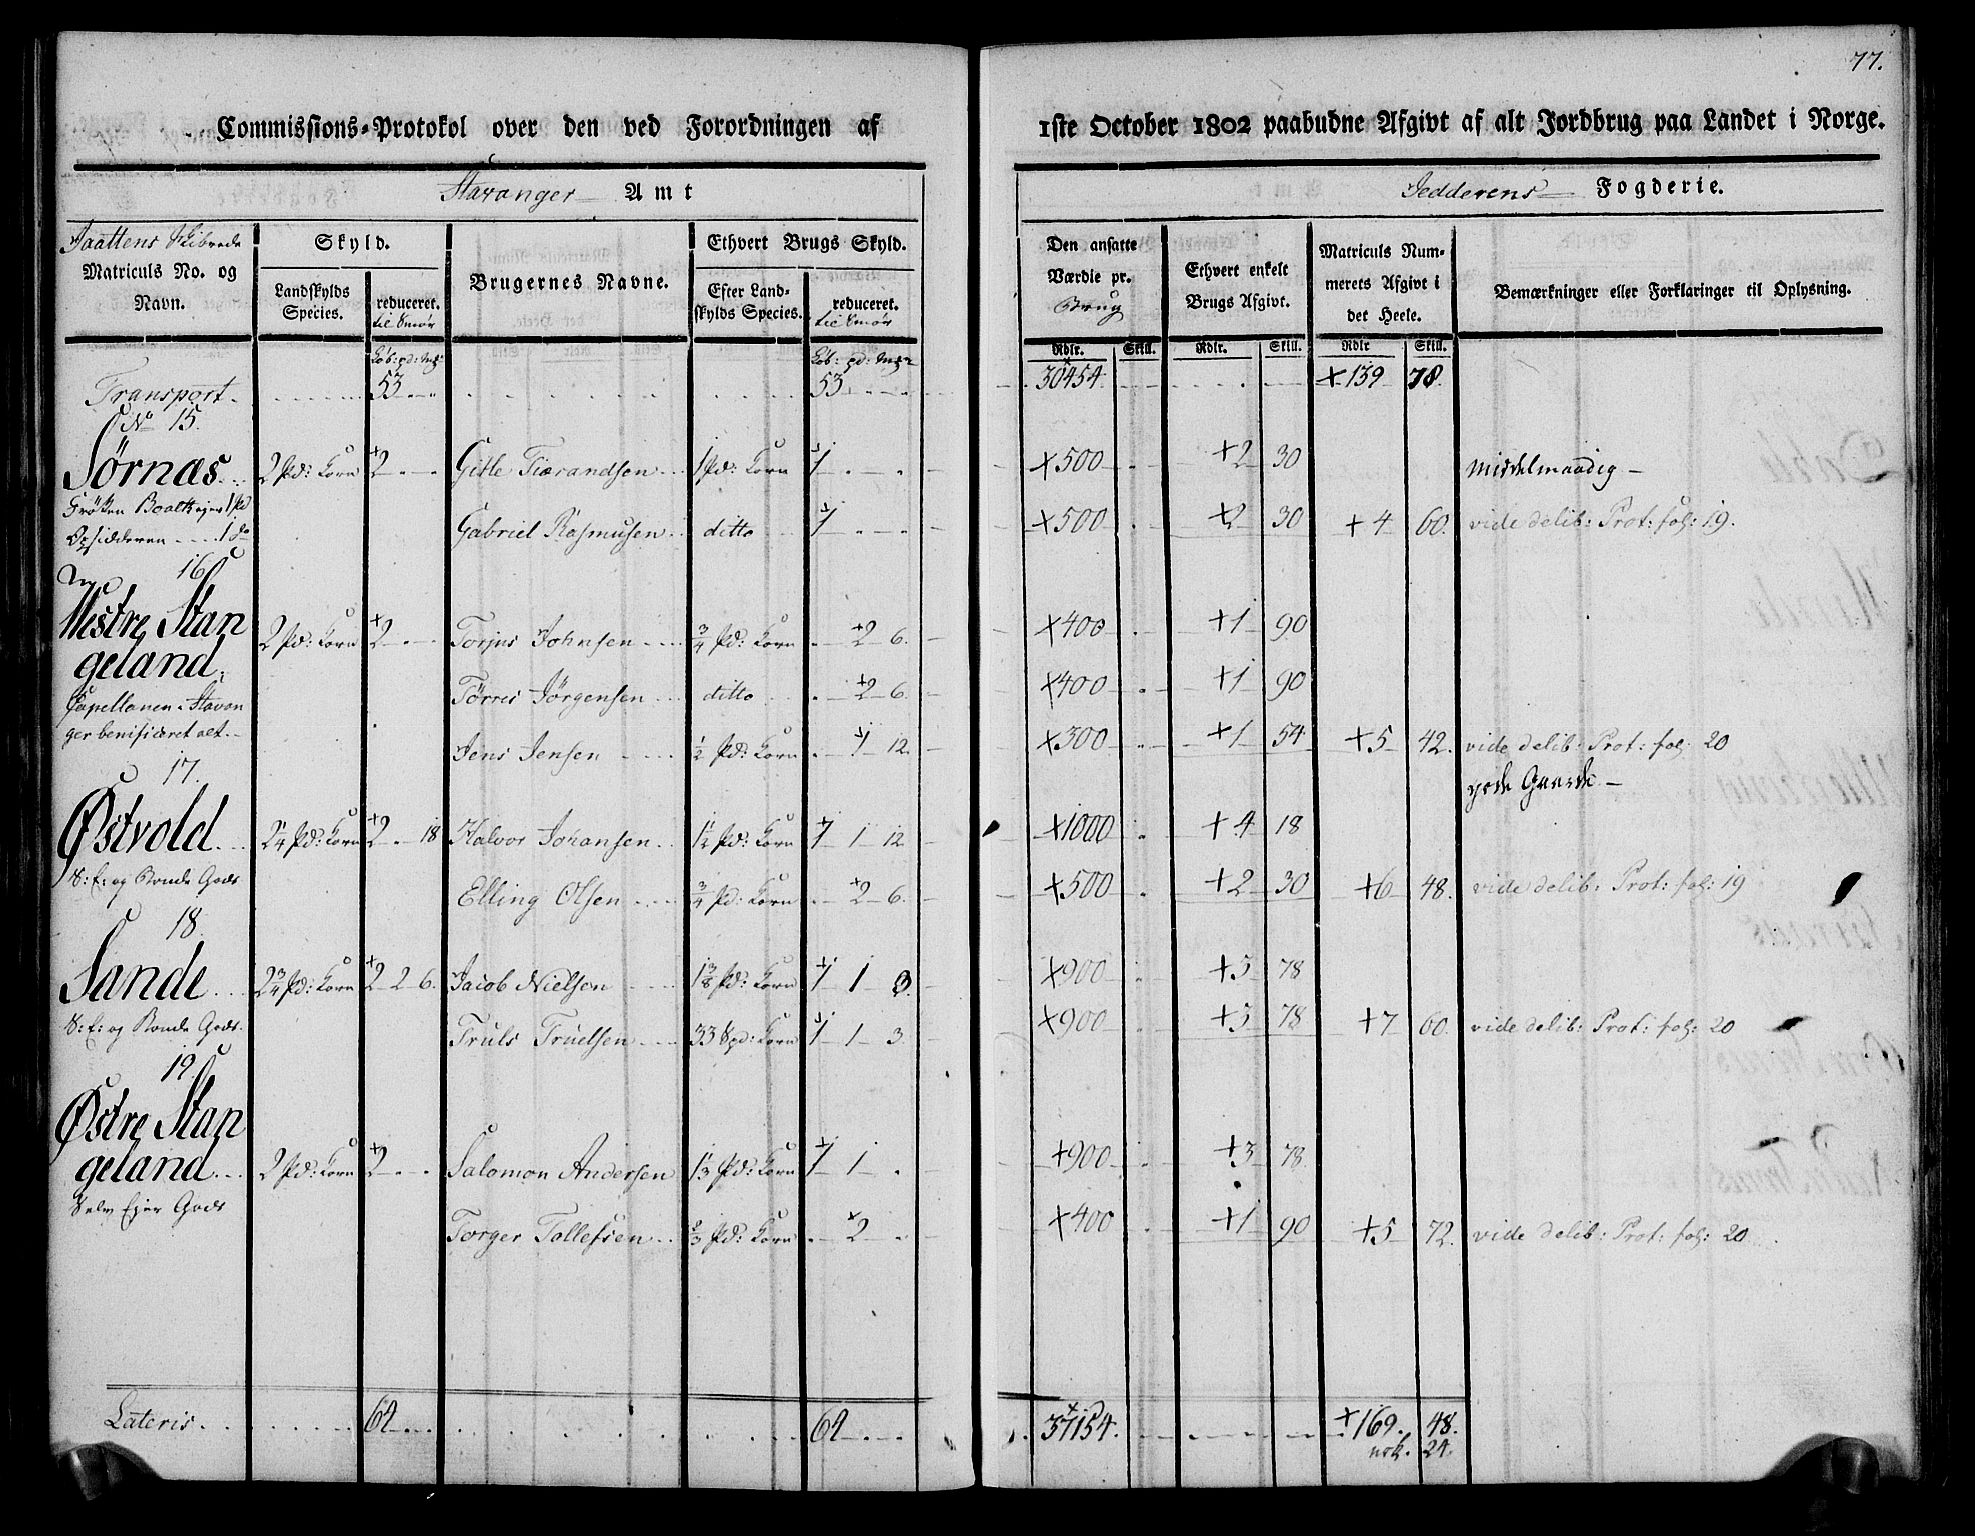 77.
Commissions-Protokol over den ved Forordningen af 1ste October 1802 paabudne Afgivt af alt Jordbrug paa Landet i Norge.
Stavanger Amt
Jedderens Fogderie.
Jaattens Skibrede
Matriculs No. og Navn.
Skyld.
Landskylds Species.
reduceret. til Smør
Brugernes Navne.
Ethvert Brugs Skyld.
Efter Landskylds Species.
reduceret. til Smør
Den ansatte Værdie pr. Brug
Ethvert enkelt Brugs Afgivt.
Matriculs Nummerets Afgivt i det Heele.
Bemærkninger eller Forklaringer til Oplysning.
Rdlr. Skill. Rdlr. Skill. Rdlr Skill.
Transport. 53 53 30454 139 78
No 15.
Sørnæs 2 Pd: Korn 2 Gitle Tiærandsen 1 Pd: Korn 1 +500 +2 30 middelmaadig
Frøken Boalt ejer 1 Pd
Opsidderen 1 do Gabriel Rasmusen ditto 1 +500 +2 30 +4 60. vide delib: Prot: fol: 19.
16
Westre Stan
geland 2 Pd: Korn 2 Torjus Johnsen 3/4 Pd: Korn 2 6. +400 +1 90
Capellanen i Stavan Tørres Jørgensen ditto 2 6. +400 +1 90
ger benificeret alt. Jens Jensen 1/2 Pd: Korn 1 12. +300 +1 54 +5 42. vide delib: Prot: fol: 20
17. gode Gaarde
Østvold 2 1/4 Pd: Korn 2 18 Halvor Johansen 1 1/2 Pd: Korn 1 1 12 +1000 +4 18
S: E: og Bonde Gods Elling Olsen 3/4 Pd: Korn 2 6. +500 +2 30 +6 48. vide delib: Prot: fol: 19
18.
Sande 2 3/4 Pd: Korn 2 2 6. Jacob Nielsen 1 3/8 Pd: Korn 1 1 3. +900 +3 78
S: E: og Bonde Gods. Truls Truelsen 33 Spd: Korn 1 1 3. +900 +3 78 +7 60. vide delib: Prot: fol: 20
19.
Østre Stan
geland 2 Pd: Korn 2 Salomon Andersen 1 1/3 Pd: Korn 1 1 +900 +3 78
Selv Ejer Gods Torger Tollefsen 2/3 Pd: Korn 2 +400 +1 90 +5 72. vide delib: Prot: fol: 20
Lateris 64 64 37154. +169. 48.
nok. 24.